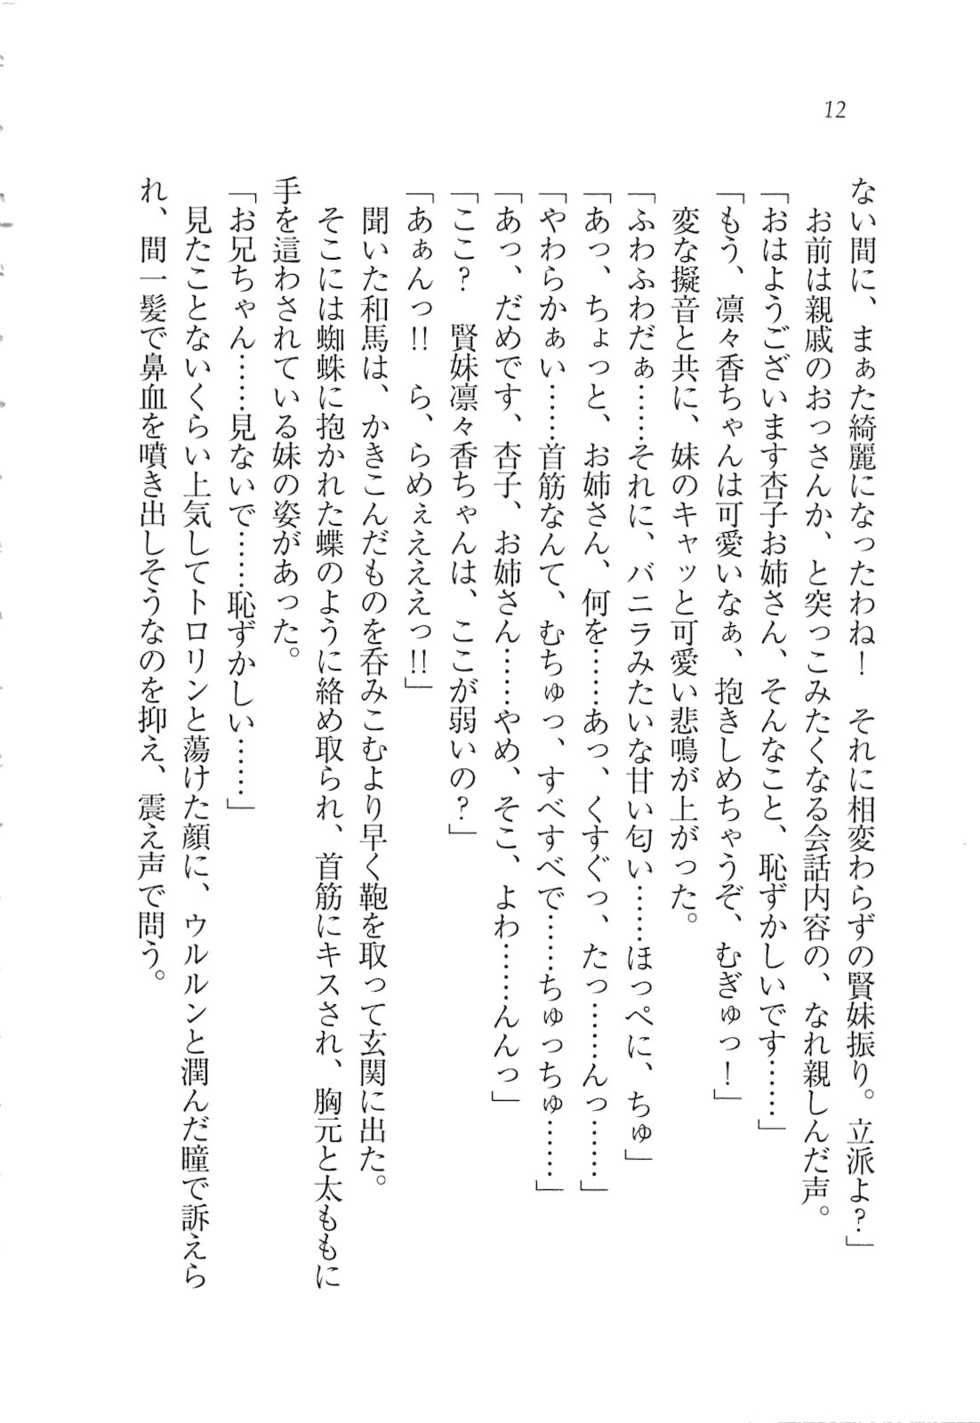 12
ない間に、まぁた綺麗になったわね！　それに相変わらずの賢妹振り。立派よ？」
　お前は親戚のおっさんか、と突っこみたくなる会話内容の、なれ親しんだ声。
「おはようございます杏子お姉さん、そんなこと、恥ずかしいです……」
「もう、凛々香ちゃんは可愛いなぁ、抱きしめちゃうぞ、むぎゅっ！」
　変な擬音と共に、妹のキャッと可愛い悲鳴が上がった。
「ふわふわだぁ……それに、バニラみたいな甘い匂い……ほっぺに、ちゅ」
「あっ、ちょっと、お姉さん、何を……あっ、くすぐっ、たっ……んっ……」
「やわらかぁい……首筋なんて、むちゅっ、すべすべで……ちゅっちゅ……」
「あっ、だめです、杏子、お姉さん……やめ、そこ、よわ……んんっ」
「ここ？　賢妹凛々香ちゃんは、ここが弱いの？」
「あぁんっ!!　ら、らめぇえええっ!!」
　聞いた和馬は、かきこんだものを呑みこむより早く鞄を取って玄関に出た。
　そこには蜘蛛に抱かれた蝶のように絡め取られ、首筋にキスされ、胸元と太ももに
手を這わされている妹の姿があった。
「お兄ちゃん……見ないで……恥ずかしい……」
　見たことないくらい上気してトロリンと蕩けた顔に、ウルルンと潤んだ瞳で訴えら
れ、間一髪で鼻血を噴き出しそうなのを抑え、震え声で問う。